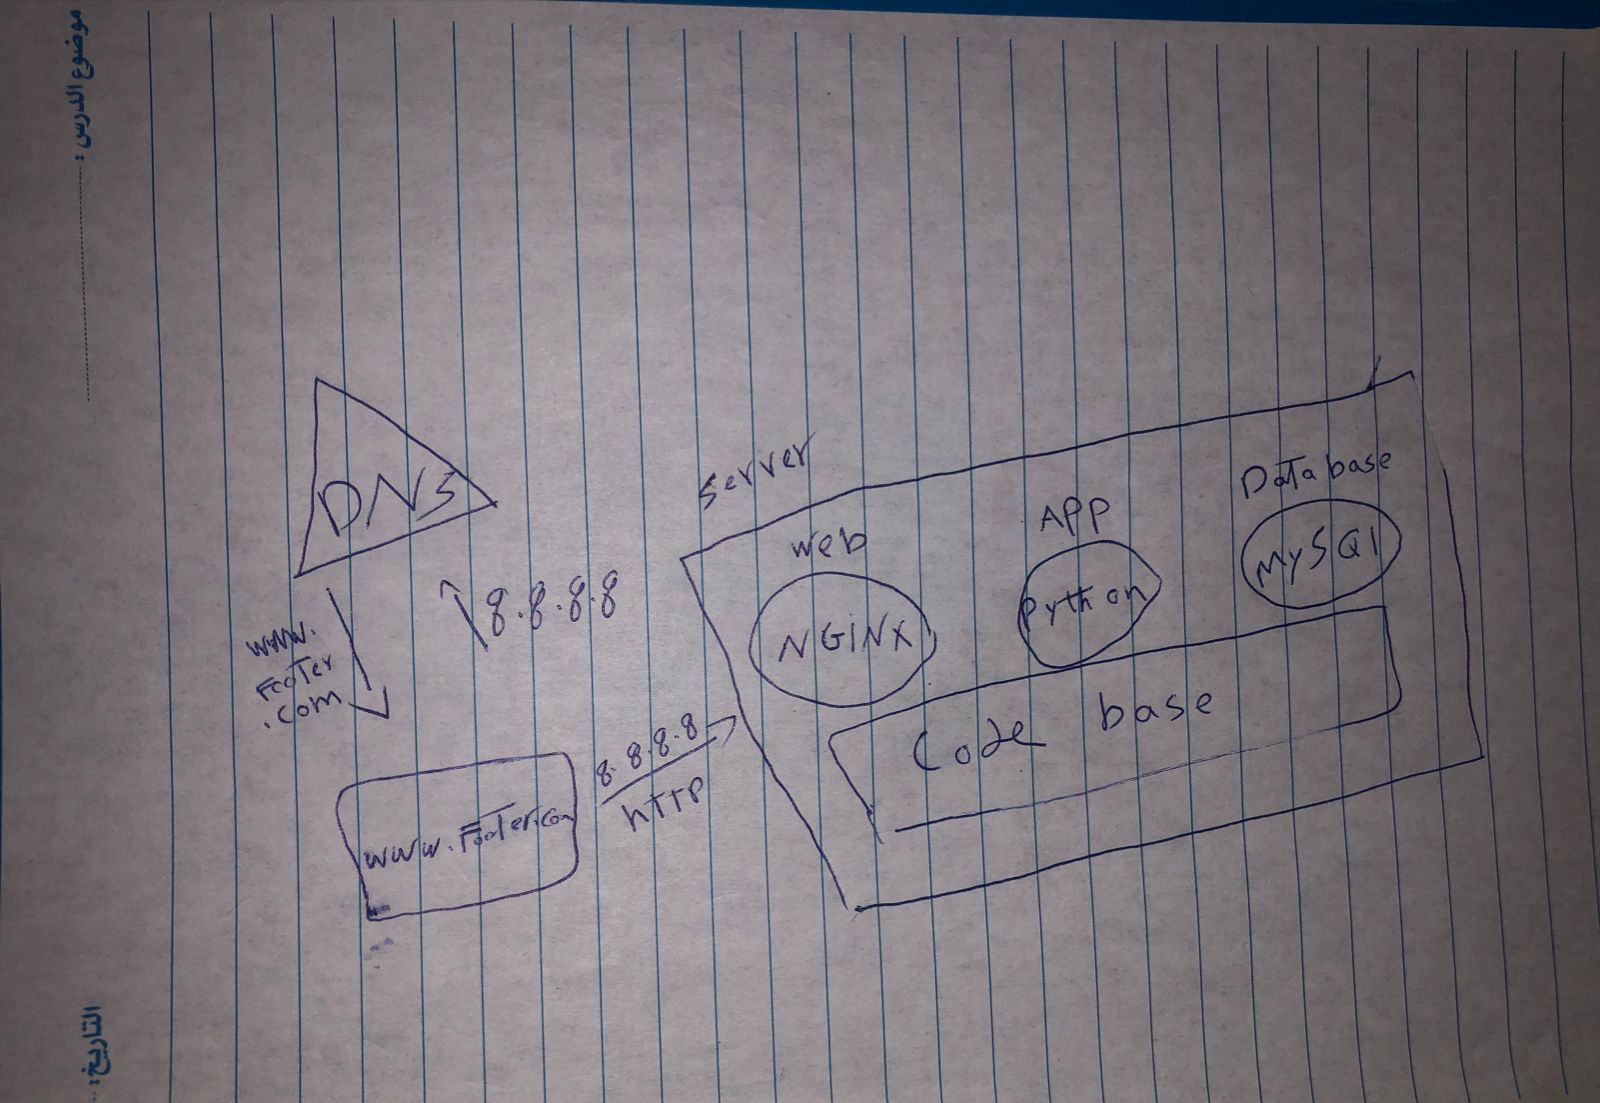 موضوع الدرس :
التاريخ:
DNS
www.
Footer
.com
8.8.8.8
www.Footer.com
8.8.8.8
http
Server
Web
NGINX
APP
Python
Database
MySQl
Code base